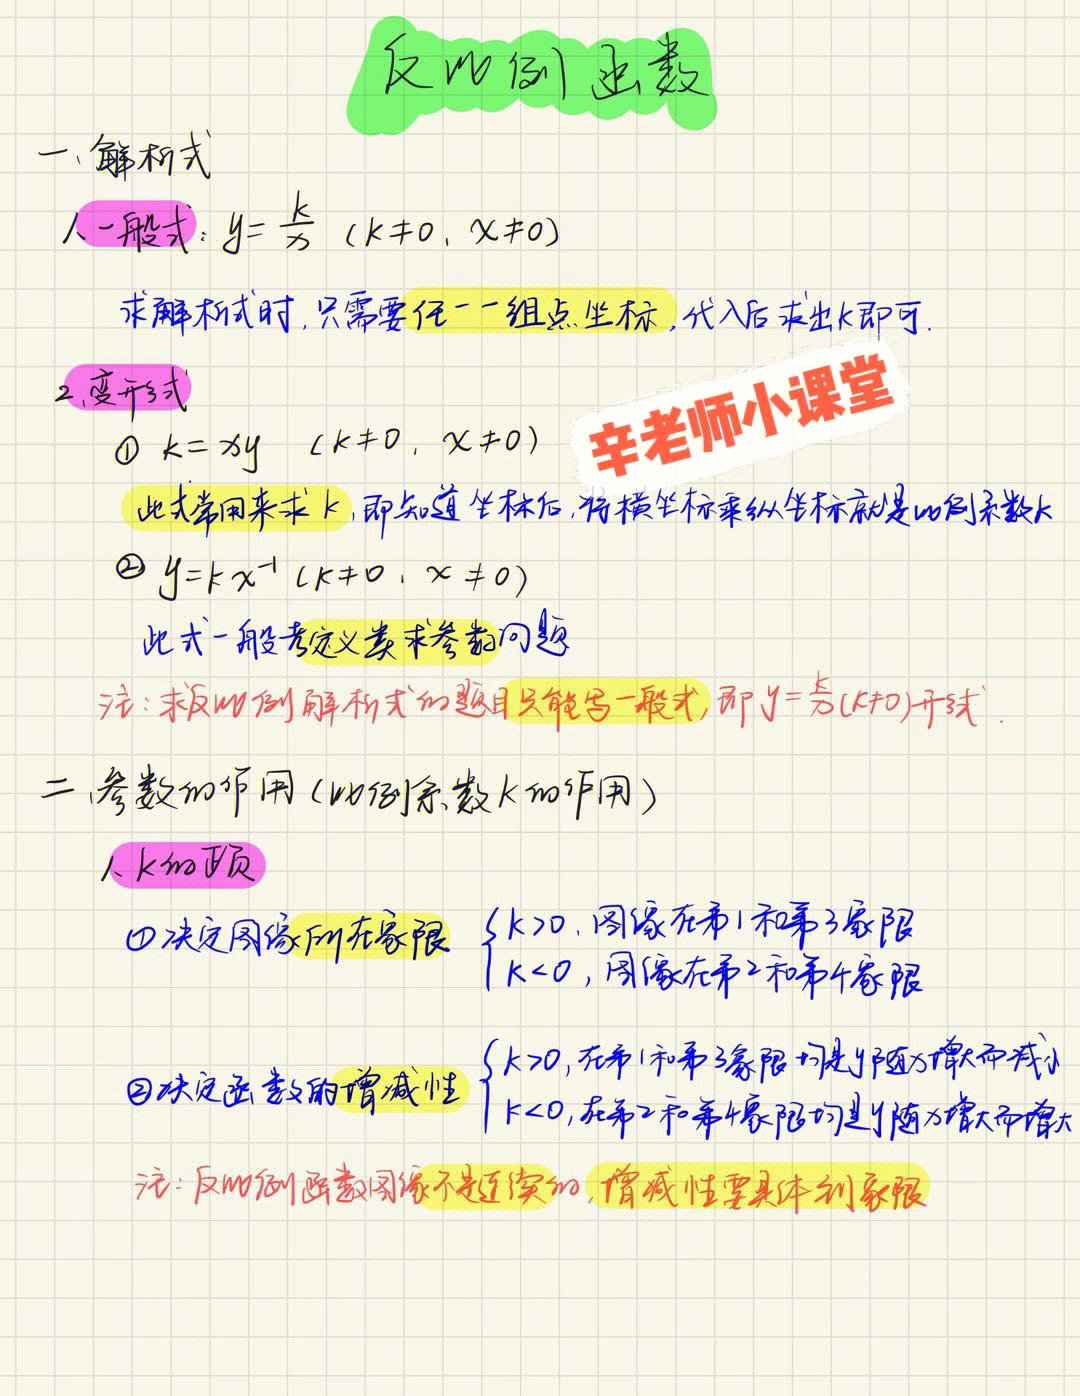 反比例函数
一、解析式
1、一般式：y=k/x （k≠0、x≠0）
求解析式时，只需要任一一组点坐标，代入后求出k即可.
2、变形式
辛老师小课堂
① k=xy （k≠0、x≠0）
此式常用来求k，即知道坐标后，将横坐标乘纵坐标就是比例系数k
② y=kx⁻¹（k≠0、x≠0）
此式一般考定义类求参数问题
注：求反比例解析式的题目只能写一般式，即y=k/x(k≠0)形式.
二、参数的作用（比例系数k的作用）
1、k的
①决定图像所在象限
k>0，图像在第1和第3象限
k<0，图像在第2和第4象限
②决定函数的增减性
k>0，在第1和第3象限均是y随x增大而减小
k<0，在第2和第4象限均是y随x增大而增大
注：反比例函数图像不是连续的，增减性要具体到象限